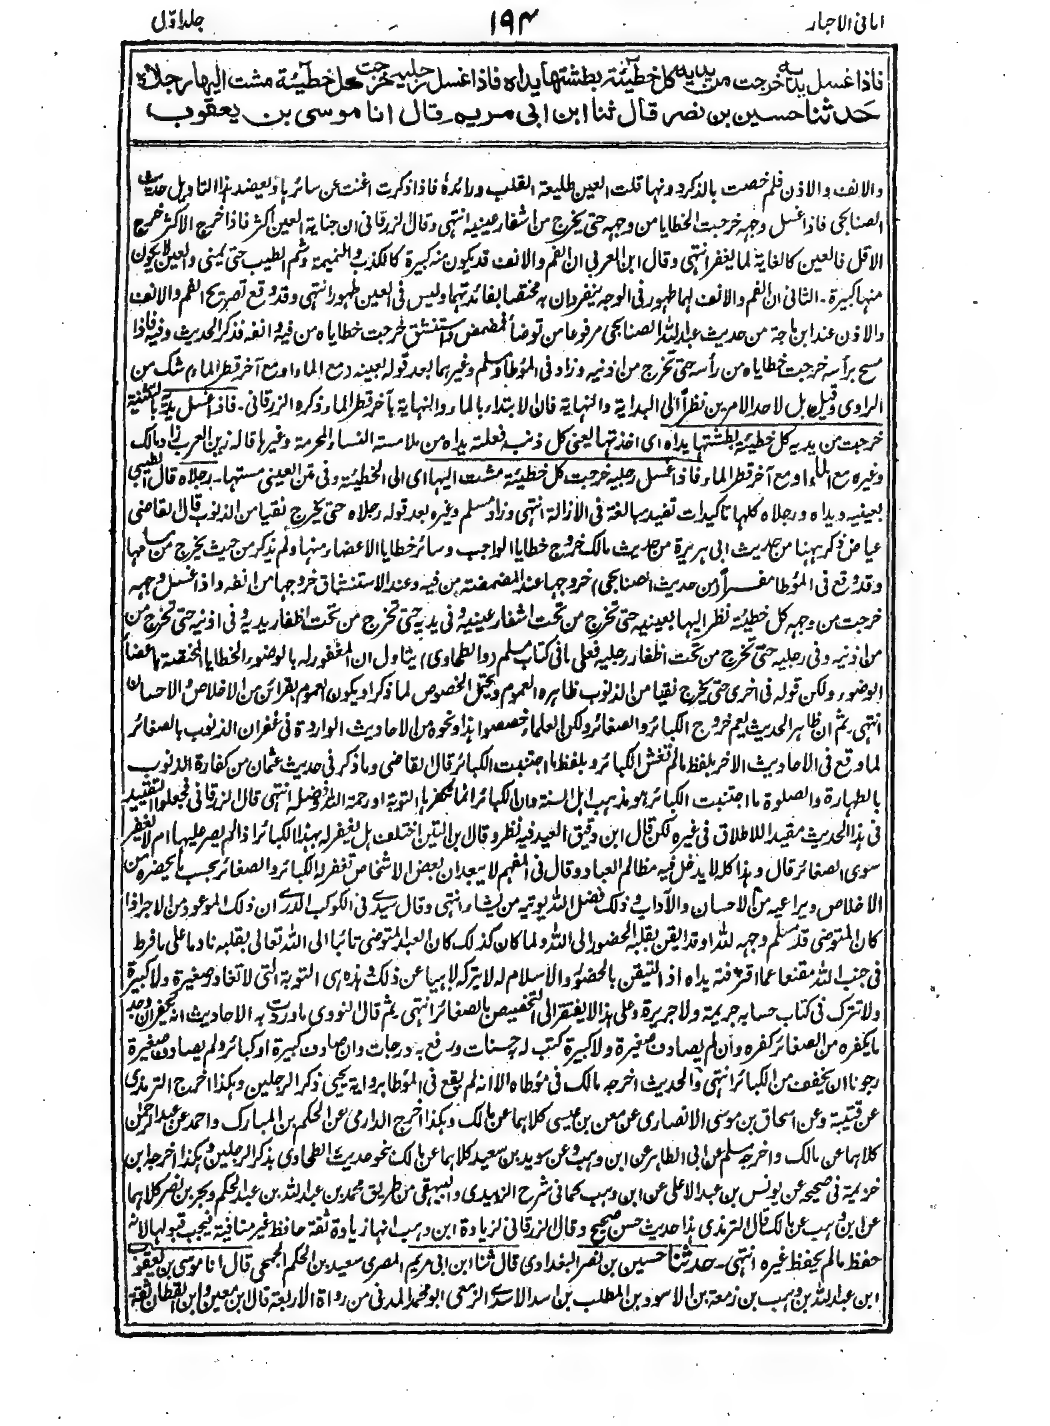 امانی الاحبار ۱۹۴ جلد اول
فاذا غسل يديه خرجت من يديه كل خطيئة بطشتها يداه فاذا غسل رجليه خرجت كل خطيئة مشت اليها رجلاه
حدثنا حسين بن نصر قال ثنا ابن ابى مريم قال انا موسى بن يعقوب
والانف والاذن فلم خصت بالذكر دونها قلت العين طليعة القلب ورائده فاذا ذكرت اغنت عن سائرها ويعضد هذا التاويل حديث
الصنابحى فاذا غسل وجهه خرجت الخطايا من وجهه حتى يخرج من اشفار عينيه انتهى وقال الزرقانى ان جناية العين اكثر فاذا خرج الاكثر خرج
الاقل فالعين كالغاية لما يغفر انتهى وقال ابن العربى ان الفم والانف قد يكون منه كبيرة كالكذب والنميمة وشم الطيب حتى يمنى والعين لا يكون
منها كبيرة۔ الثانى ان الفم والانف لهما طهور فى الوجه ينفردان به مختصا بفائدتهما وليس فى العين طهور انتهى وقد وقع تصريح الفم والانف
والاذن عند ابن ماجة من حديث عبد الله الصنابحى مرفوعا من توضأ فمضمض واستنشق خرجت خطاياه من فيه وانفه فذكر الحديث وفيه فاذا
مسح برأسه خرجت خطاياه من رأسه حتى تخرج من اذنيه وزاد فى المؤطا ومسلم وغيرهما بعد قوله بعينيه (مع الماء او مع آخر قطر الماء) شك من
الراوى وقيل بل لاحد الامرين نظراً الى البداية والنهاية فان الابتداء بالماء والنهاية بآخر قطر الماء ذكره الزرقانى۔ فاذا غسل يديه بالتثنية
خرجت من يديه كل خطيئة بطشتها يداه اى اخذتها يعنى كل ذنب فعلته يداه من ملامسة النساء المحرمة وغيرها قاله زين العرب زاد مالك
وغيره مع الماء او مع آخر قطر الماء فاذا غسل رجليه خرجت كل خطيئة مشت اليها اى الى الخطيئة وفى متن العينى مستها۔ رجلاه قال الطيبى
بعينيه ويداه ورجلاه كلها تاكيدات تفيد مبالغة فى الازالة انتهى وزاد مسلم وغيره بعد قوله رجلاه حتى يخرج نقيا من الذنوب قال القاضى
عياض ذكر ههنا من حديث ابى هريرة من حديث مالك خروج خطايا الواجب وسائر خطايا الاعضاء منها ولم يذكر من حيث يخرج من
وقد وقع فى المؤطا مفسراً (من حديث الصنابحى) خروجها عند المضمضة من فيه وعند الاستنشاق خروجها من انفه واذا غسل وجهه
خرجت من وجهه كل خطيئة نظر اليها بعينيه حتى تخرج من تحت اشفار عينيه وفى يديه حتى تخرج من تحت اظفار يديه وفى اذنيه حتى تخرج من
من اذنيه وفى رجليه حتى تخرج من تحت اظفار رجليه فعلى ما فى كتاب مسلم (والطحاوى) يتاول ان المغفور له بالوضوء الخطايا المختصة باعضاء
الوضوء ولكن قوله فى اخرى حتى يخرج نقيا من الذنوب ظاهره العموم ويحتمل الخصوص لما ذكر او يكون العموم بقرائن من الاخلاص والاحسان
انتهى۔ ثم ان ظاهر الحديث يعم خروج الكبائر والصغائر ولكن العلماء خصصوا هذا ونحوه من الاحاديث الواردة فى غفران الذنوب بالصغائر
لما وقع فى الاحاديث الاخر بلفظ ما لم تغش الكبائر وبلفظ ما اجتنبت الكبائر قال القاضى وما ذكر فى حديث عثمان من كفارة الذنوب
بالطهارة والصلوة ما اجتنبت الكبائر هو مذهب اهل السنة وان الكبائر انما يكفرها التوبة او رحمة الله وفضله انتهى قال الزرقانى فجعلوا التقييد
فى هذا الحديث مقيدا للاطلاق فى غيره لكن قال ابن دقيق العيد فيه نظر وقال ابن التين اختلف هل يغفر له بهذا الكبائر اذا لم يصر عليها ام لا يغفر
سوى الصغائر قال وهذا كله لا يدخل فيه مظالم العباد وقال فى المفهم لا يبعد ان بعض الاشخاص تغفر له الكبائر والصغائر بحسب ما يحضره من
الاخلاص ويراعيه من الاحسان والآداب وذلك فضل الله يوتيه من يشاء انتهى وقال سيدى فى الكوكب الدرى ان ذلك الموعود من الاجر اذا
كان المتوضى قد سلم وجهه لله او قد ايقن بقلبه الحضور الى الله ولما كان كذلك كان العبد المتوضى تائبا الى الله تعالى بقلبه نادما على ما فرط
فى جنب الله مقنعا عما اقترفته يداه اذ التيقن بالحضور والاسلام له لا يتركه لاهيا عن ذلك فهذه هى التوبة التى لا تغادر صغيرة ولا كبيرة
ولا تترك فى كتاب حسابه جريمة ولا جريرة وعلى هذا لا يفتقر الى التخصيص بالصغائر انتهى۔ ثم قال النووى ما وردت به الاحاديث انه يكفر ان وجد
ما يكفره من الصغائر كفره وان لم يصادف صغيرة ولا كبيرة كتب له حسنات ورفع به درجات وان صادف كبيرة او كبائر ولم يصادف صغيرة
رجونا ان يخفف من الكبائر انتهى والحديث اخرجه مالك فى مؤطاه الا انه لم يقع فى المؤطا برواية يحيى ذكر الرجلين وهكذا اخرج الترمذى
عن قتيبة وعن اسحاق بن موسى الانصارى عن معن بن عيسى كلاهما عن مالك وهكذا اخرج الدارمى عن الحكم بن المبارك واحمد عن عبد الرحمن
كلاهما عن مالك واخرجه مسلم عن ابى الطاهر عن ابن وهب وعن سويد بن سعيد كلاهما عن مالك نحو حديث الطحاوى بذكر الرجلين وهكذا اخرجه ابن
خزيمة فى صحيحه عن يونس بن عبد الاعلى عن ابن وهب كما فى شرح الزبيدى والبيهقى من طريق محمد بن عبد الله بن عبد الحكم وبحر بن نصر كلاهما
عن ابن وهب عن مالك قال الترمذى هذا حديث حسن صحيح وقال الزرقانى لزيادة ابن وهب انها زيادة ثقة حافظ غير منافية فيجب قبولها لانه
حفظ ما لم يحفظ غيره انتهى۔ حدثنا حسين بن نصر البغدادى قال ثنا ابن ابى مريم المصرى سعيد بن الحكم الجمحى قال انا موسى بن يعقوب
ابن عبد الله بن وهب بن زمعة بن الاسود بن المطلب بن اسد الاسدى الزمعى ابو محمد المدنى من رواة الاربعة قال ابن معين وابن القطان ثقة